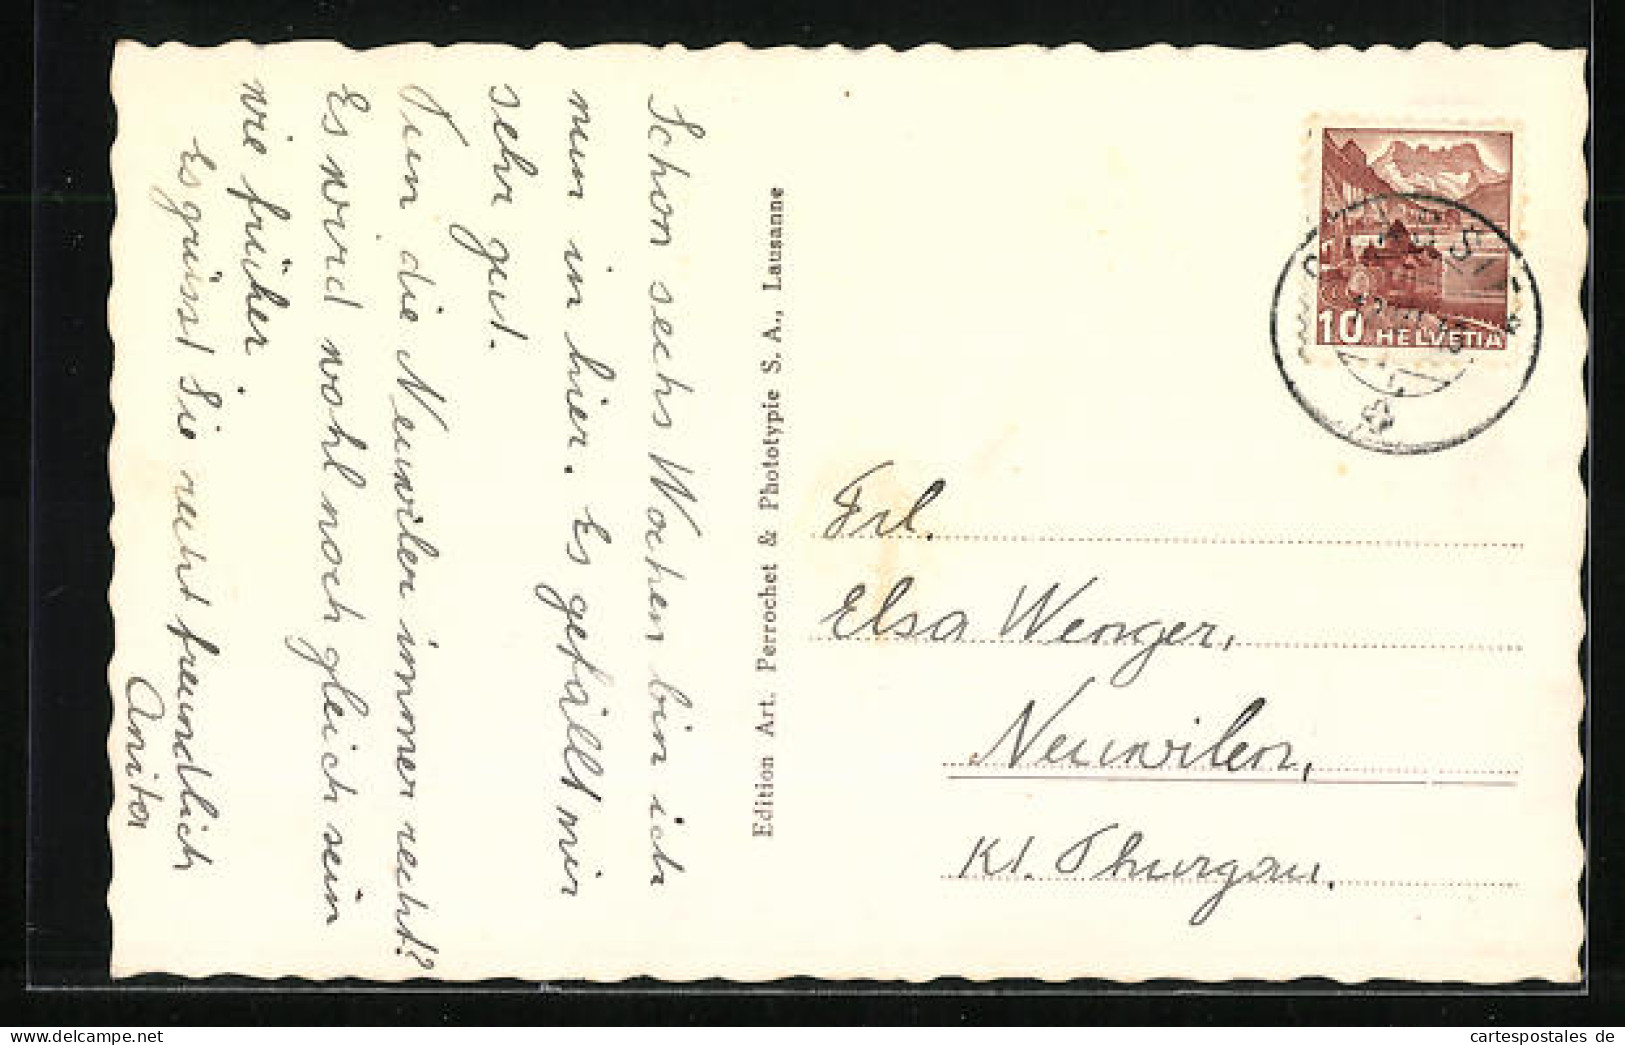 Schon sechs Wochen bin ich
nun in hier. Es gefällt mir
sehr gut.
Tun die Neuwilen immer recht?
Es wird wohl noch gleich sein
wie früher
Es grüsst Sie recht freundlich
Anita
Edition Art. Perrochet & Phototypie S. A., Lausanne
10 HELVETIA
Frl.
Elsa Wenger,
Neuwilen,
Kt. Thurgau.
cartespostales.de